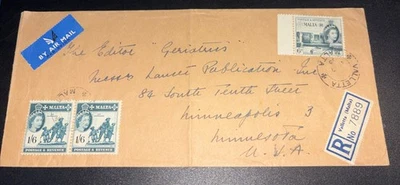 BY AIR MAIL
The Editor "Geriatrics"
Messrs Lancet Publication Inc.
83 South Tenth Street
Minneapolis 3
Minnesota
U.S.A
MALTA
VALLETTA
MALTA
1/6
POSTAGE & REVENUE
MALTA
1/6
POSTAGE & REVENUE
R
Valletta (Malta)
No 7889